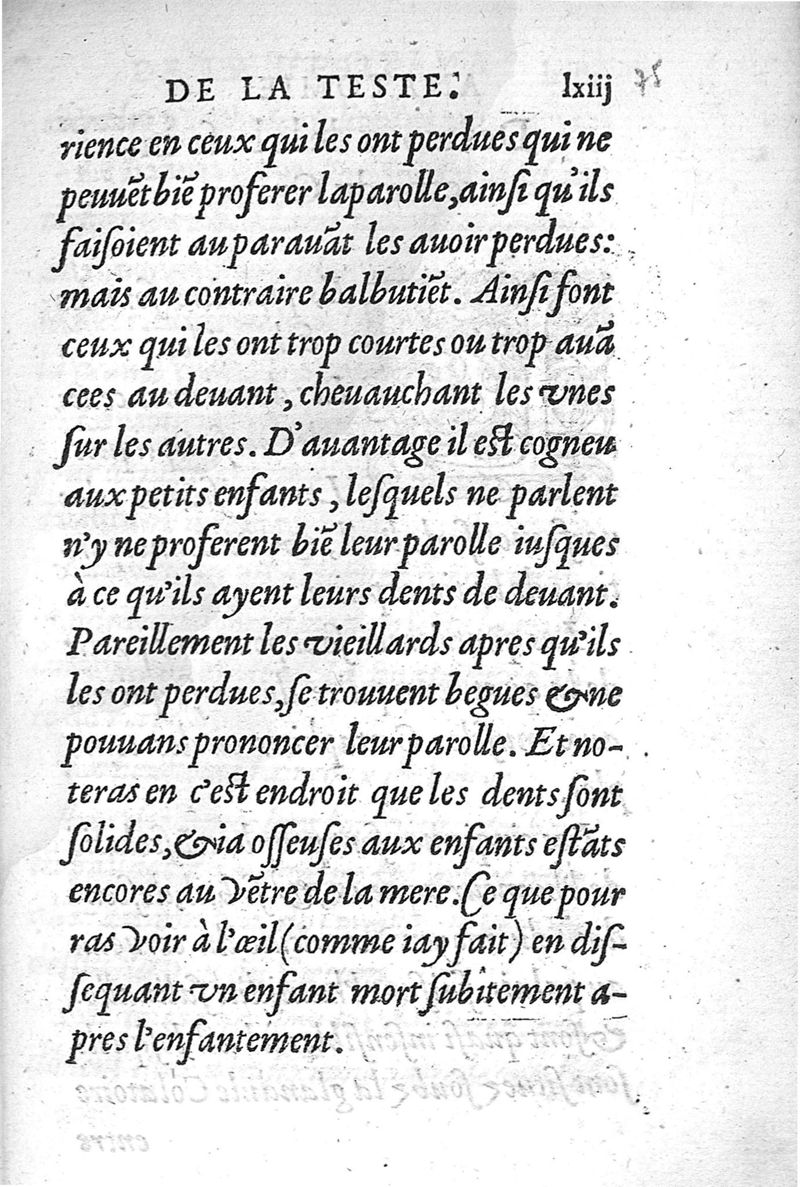 DE LA TESTE. lxiij 75
rience en ceux qui les ont perdues qui ne
peuuẽt biẽ proferer la parolle, ainſi qu'ils
faiſoient au parauãt les auoir perdues:
mais au contraire balbutiẽt. Ainſi font
ceux qui les ont trop courtes ou trop auã
cees au deuant, cheuauchant les vnes
ſur les autres. D'auantage il eſt cogneu
aux petits enfants, leſquels ne parlent
n'y ne proferent biẽ leur parolle iuſques
à ce qu'ils ayent leurs dents de deuant.
Pareillement les vieillards apres qu'ils
les ont perdues, ſe trouuent begues & ne
pouuans prononcer leur parolle. Et no-
teras en c'eſt endroit que les dents ſont
ſolides, & ia oſſeuſes aux enfants eſtãts
encores au vẽtre de la mere. Ce que pour
ras voir à l'œil (comme iay fait) en diſ-
ſequant vn enfant mort ſubitement a-
pres l'enfantement.